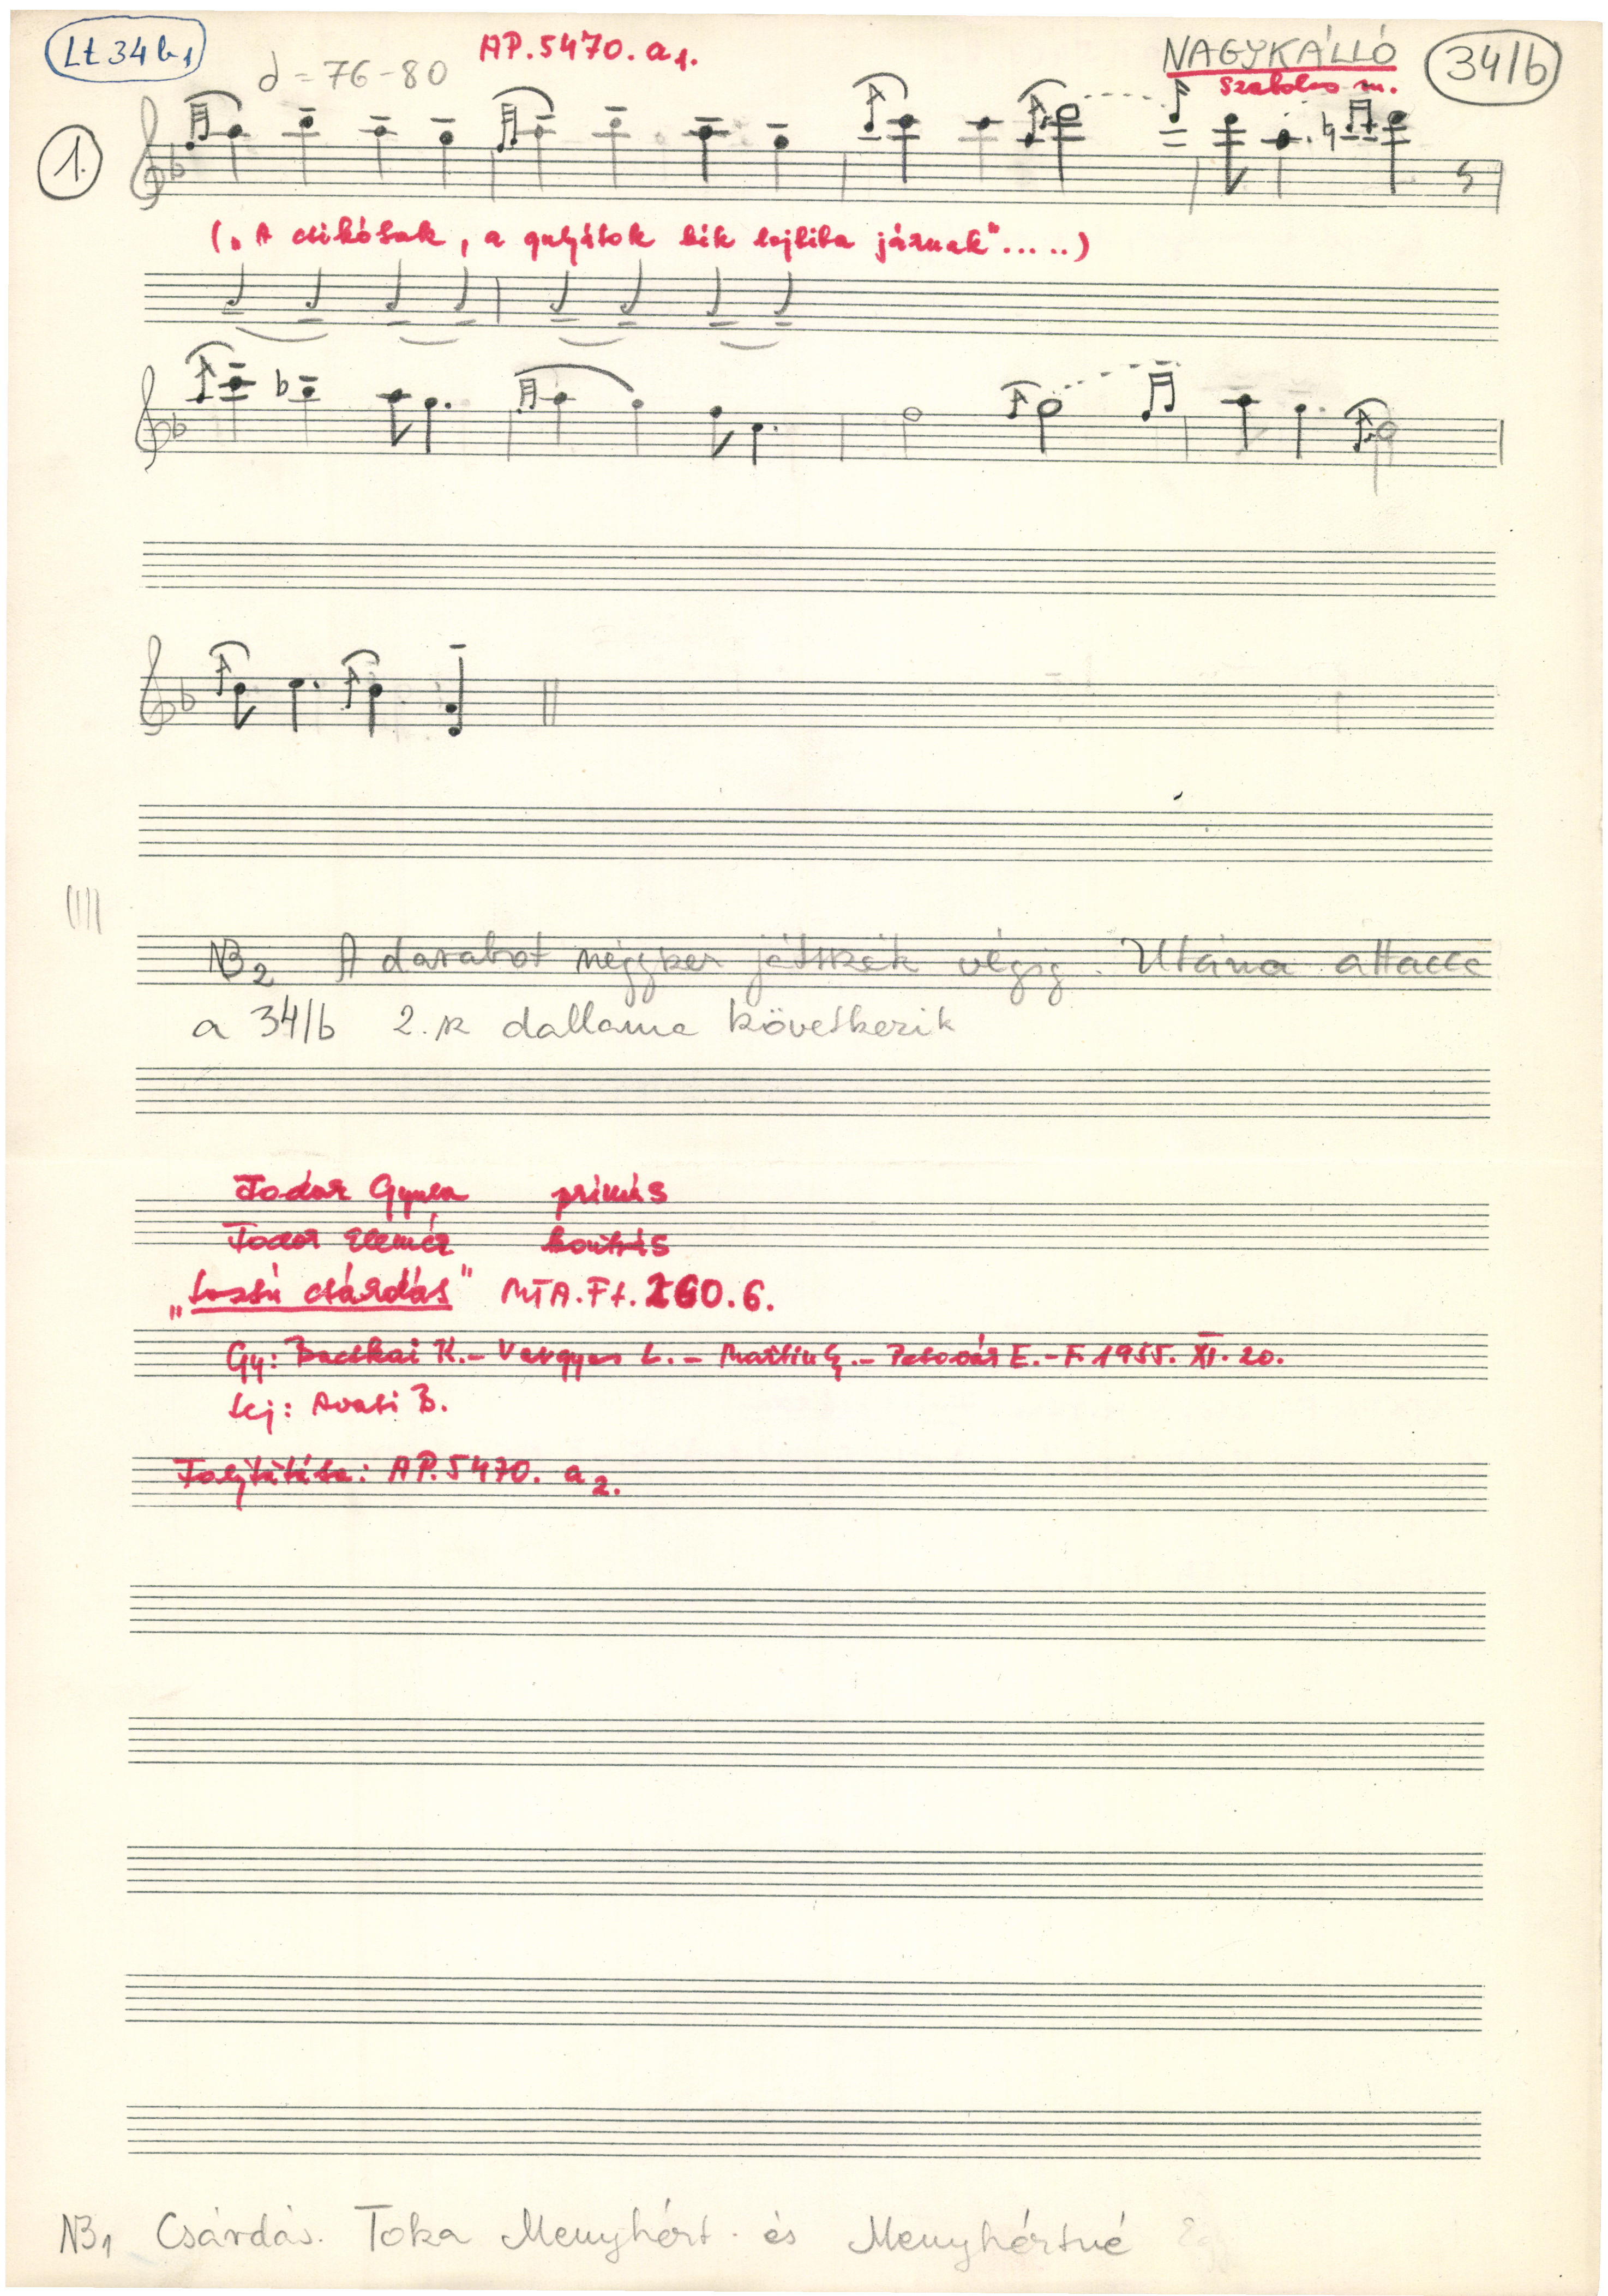 Lt 34 b1
AP. 5470. a1.
NAGYKÁLLÓ
34/b
= 76-80
Szabolcs m.
1.
(„A csikósok, a gulyások kék lajbiba járnak".....)
NB2 A darabot négyszer játszák végig. Utána attacca
a 34/b 2.ik dallama következik
Todor Gyula prímás
Todor Elemér kontrás
„Lassú csárdás" MTA. Ft. 260. 6.
Gy: Bacskai K. - Vargyas L. - Martin G. - Pesovár E. - F. 1955. XI. 20.
Lej: Avasi B.
Folytatása: AP. 5470. a2.
NB1 Csárdás. Toka Menyhért. és Menyhértné